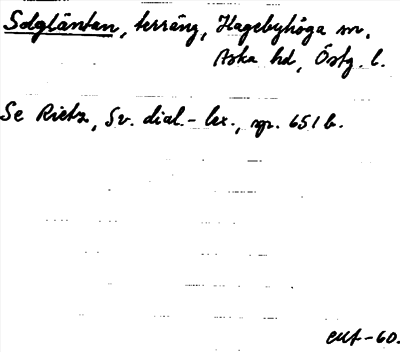 Solgläntan, terräng, Hagebyhöga sn,
Aska hd, Östg. l.
Se Rietz, Sv. dial.-lex., sp. 651 b.
-60.